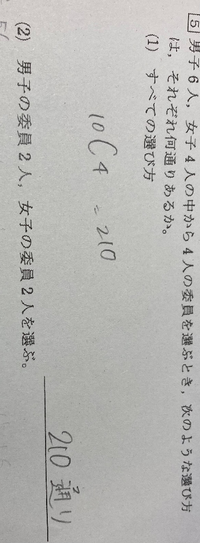 5 男子6人，女子4人の中から4人の委員を選ぶとき，次のような選び方
は，それぞれ何通りあるか。
(1) すべての選び方
10C4 = 210
210通り
(2) 男子の委員2人，女子の委員2人を選ぶ。